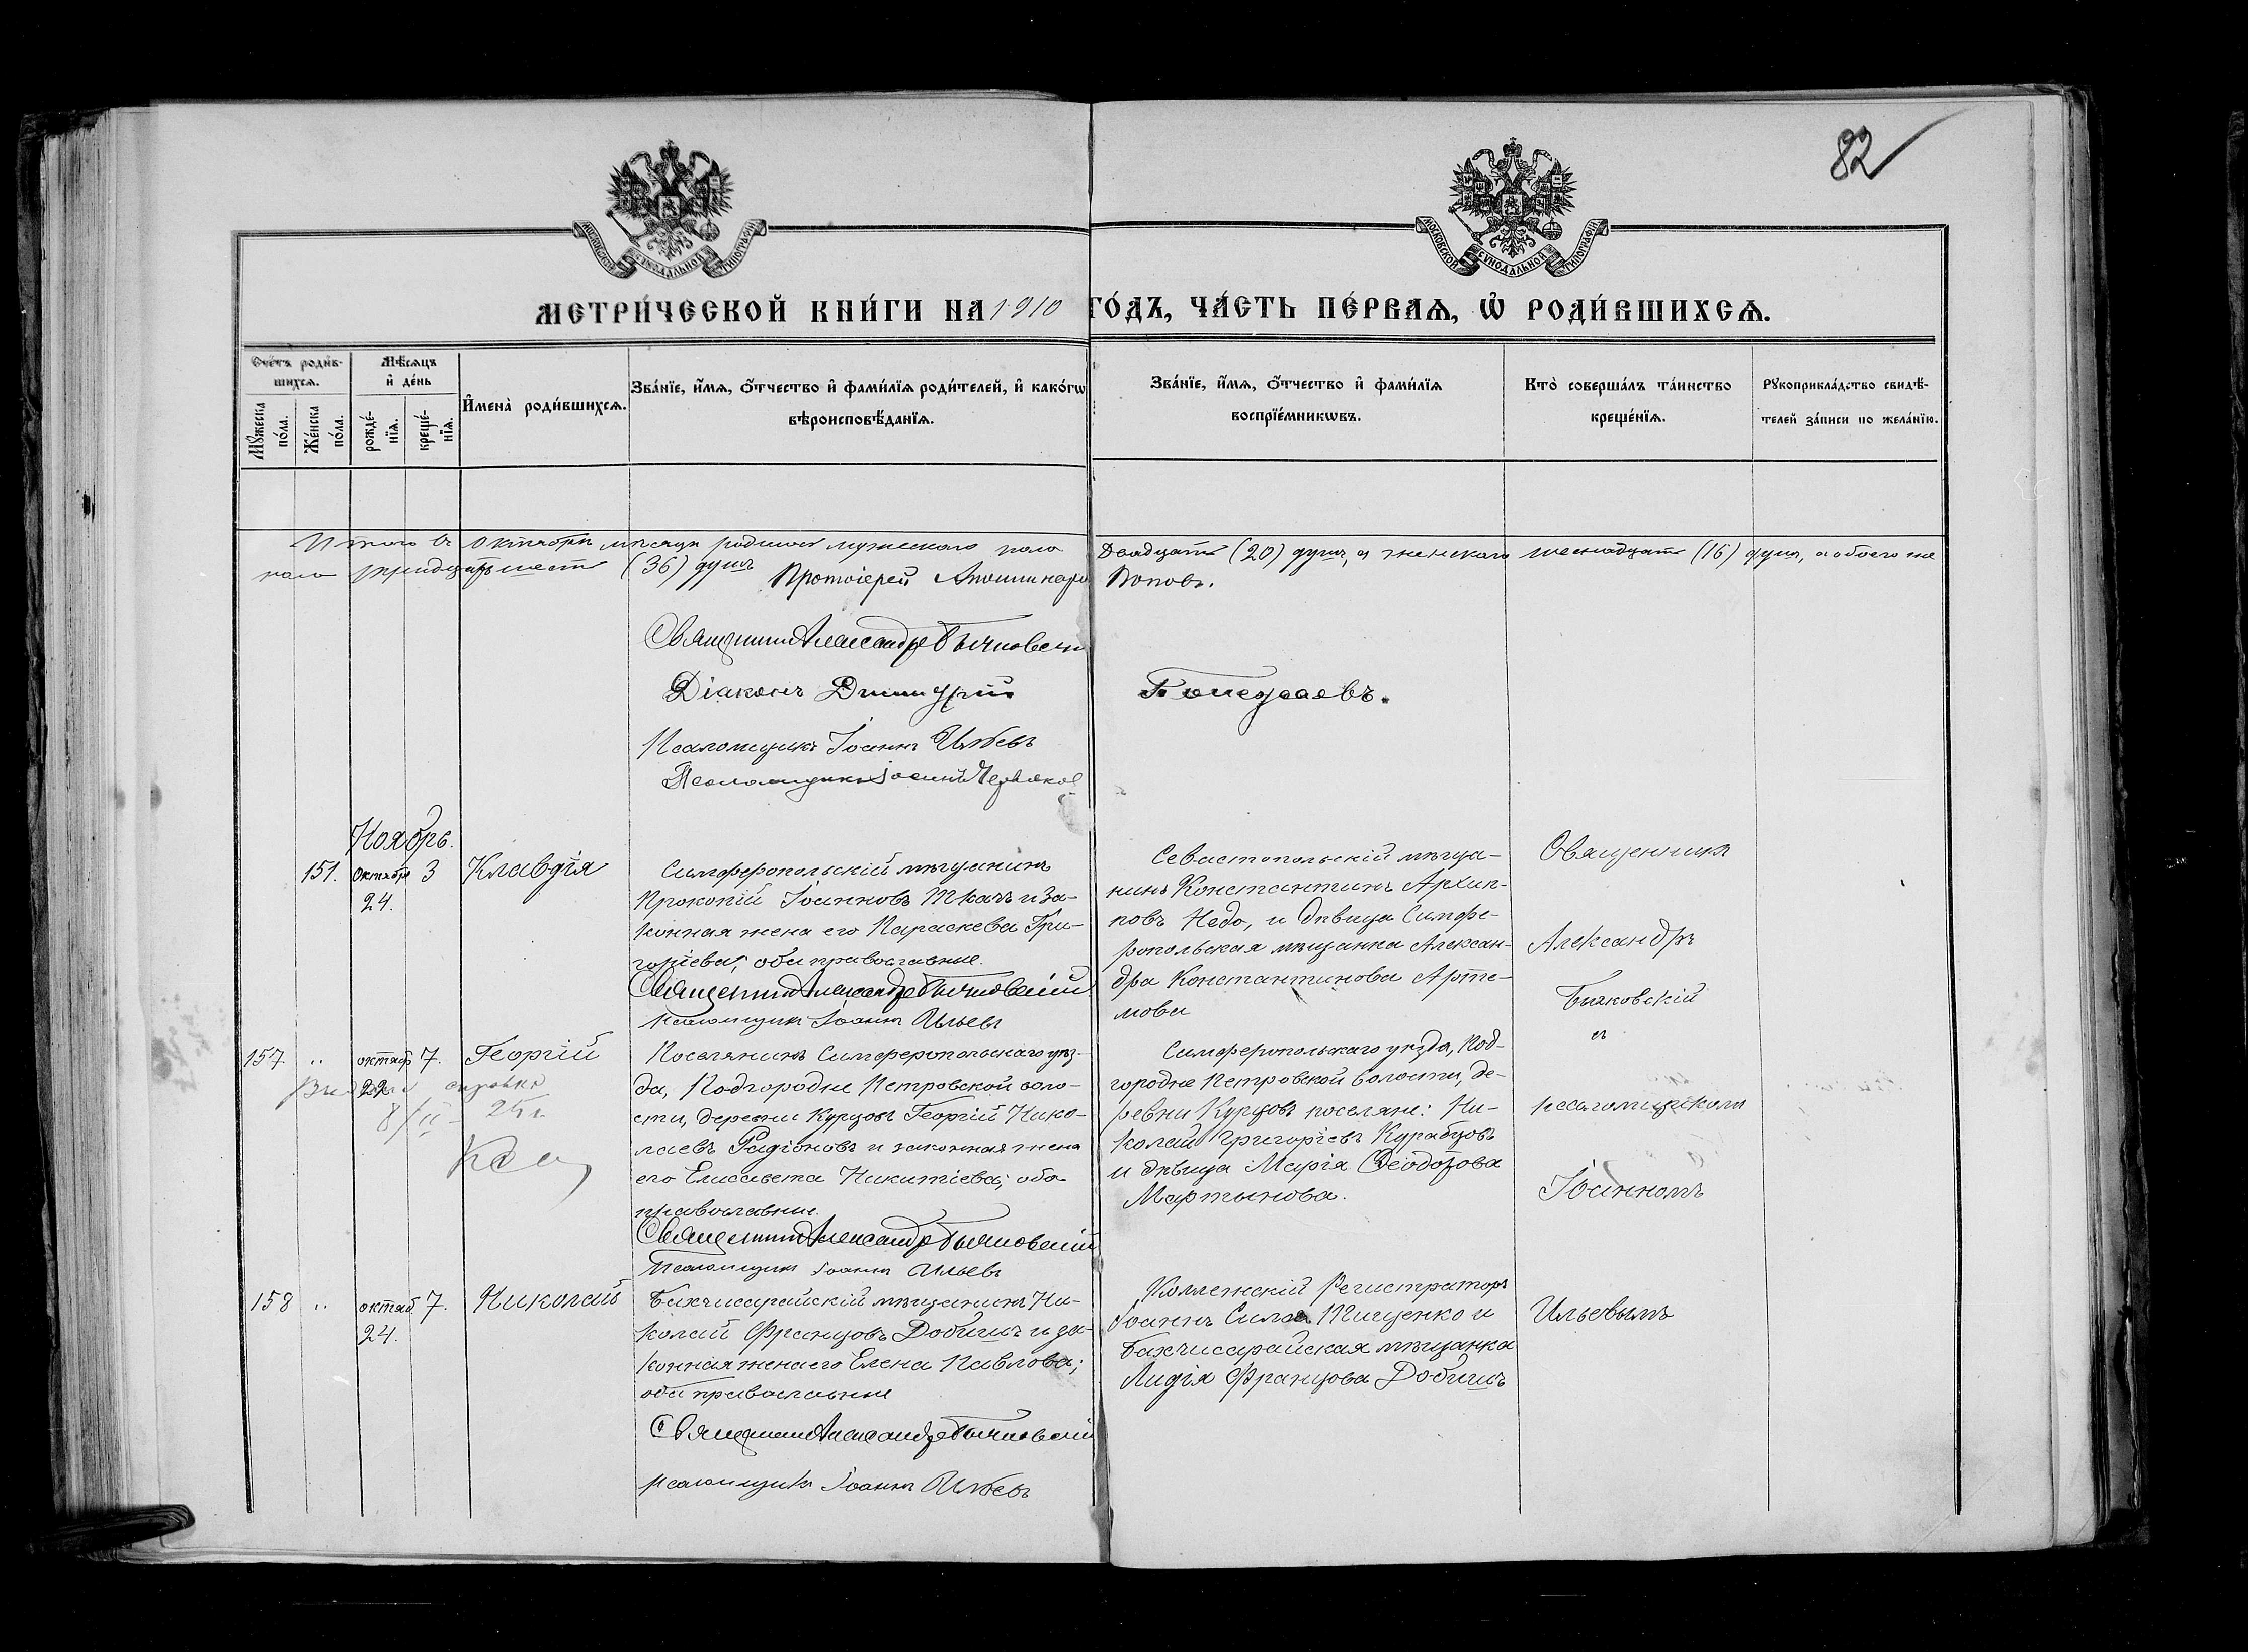 82
МОСКОВСКОЙ СѴНОДАЛЬНОЙ ТИПОГРАФІИ
МОСКОВСКОЙ СѴНОДАЛЬНОЙ ТИПОГРАФІИ
МЕТРИ́ЧЕСКОЙ КНИ́ГИ НА 1910 ГО́ДЪ, ЧА́СТЬ ПЕ́РВАѦ, Ѡ҆ РОДИ́ВШИХСѦ.
Сче́тъ роди́в-
шихсѧ.
Мꙋ́жеска
по́ла.
Же́нска
по́ла.
Мѣ́сѧцъ
и҆ де́нь
рожде́-
нїѧ.
креще́-
нїѧ.
И҆мена̀ роди́вшихсѧ.
Зва́нїе, и҆́мѧ, ѻ҆́тчество и҆ фами́лїѧ роди́телей, и҆ како́гѡ
вѣроисповѣ́данїѧ.
Зва́нїе, и҆́мѧ, ѻ҆́тчество и҆ фами́лїѧ
воспрїе́мникѡвъ.
Кто̀ соверша́лъ та́инство
креще́нїѧ.
Рꙋкоприкла́дство свидѣ́-
телей за́писи по жела́нїю.
Итого въ Октябрѣ мѣсяцѣ родилось мужескаго пола двадцать (20) душъ, а женскаго шеснадцать (16) душъ, а обоего же
пола тридцать шесть (36) душъ Протоіерей Поповъ.
Священникъ Александръ Бычковскій
Діаконъ Димитрій
Псаломщикъ Іоаннъ Ильевъ
Псаломщикъ
Ноябрь.
151. Октября 24. 3 Клавдія
Симферопольскій мѣщанинъ
Прокопій Іоанновъ Ткачъ и за-
конная жена его Параскева Гри-
горіева; оба православные.
Священникъ Александръ Бычковскій
псаломщикъ Іоаннъ Ильевъ
Севастопольскій мѣща-
нинъ Константинъ Архип-
повъ Недо, и дѣвица Симфе-
ропольская мѣщанка Алексан-
дра Константинова Арте-
мова
Священникъ
Александръ
Бычковскій
съ
псаломщикомъ
Іоанномъ
Ильевымъ
157 " октяб. 22 7. Георгій
справка
8/II 25 г.
Поселянинъ Симферопольскаго уѣз-
да, Подгородне Петровской воло-
сти, деревни Курцовъ Георгій Нико-
лаевъ Радіоновъ и законная жена
его Елисавета Никитіева; оба
православные.
Священникъ Александръ Бычковскій
Псаломщикъ Іоаннъ Ильевъ
Симферопольскаго уѣзда, Под-
городне Петровской волости, де-
ревни Курцовъ поселяне: Ни-
колай Григоріевъ Курабцовъ
и дѣвица Марія Ѳеодотова
Мартынова.
158 " октяб. 24. 7. Николай
Бахчисарайскій мѣщанинъ Ни-
колай Францовъ Добишъ и за-
конная жена его Елена Павлова;
оба православные
Священникъ Александръ Бычковскій
псаломщикъ Іоаннъ Ильевъ
Коллежскій Регистраторъ
Іоаннъ Тищенко и
Бахчисарайская мѣщанка
Лидія Францова Добишъ